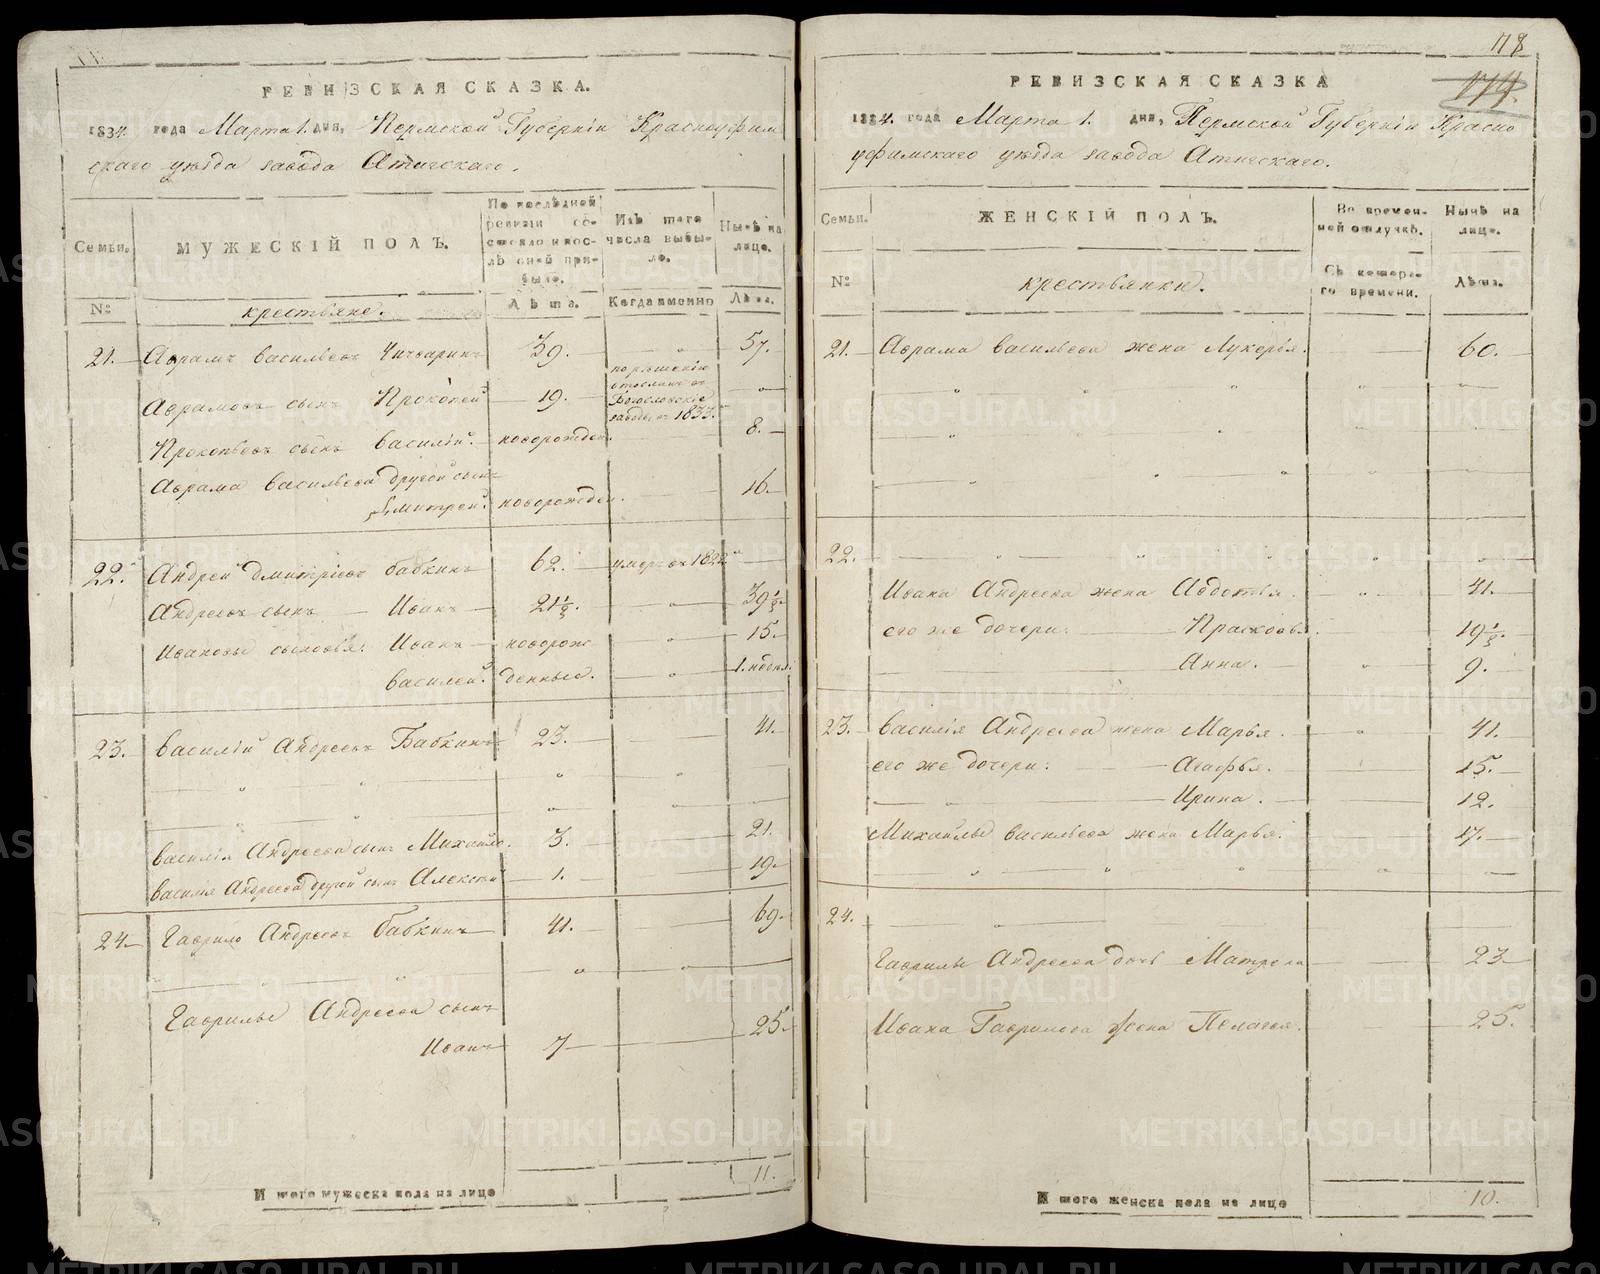 РЕВИЗСКАЯ СКАЗКА.
1834. года Марта 1. дня, Пермской Губерніи Красноуфим
скаго уѣзда завода Атигскаго.
Семьи.
МУЖЕСКІЙ ПОЛЪ.
По послѣдней
ревизіи со-
стояло и пос-
лѣ оной при-
было.
Изъ того
числа выбы-
ло.
Нынѣ на
лице.
№
крестьяне.
Лѣта.
Когда именно
Лѣта.
21. Аврамъ Васильевъ Чичваринъ 39. " 57.
Аврамовъ сынъ Прокопей 19. по рѣшенію
отосланъ въ
Богословскіе
заводы, въ 1833. "
Прокопьевъ сынъ Василій. новорожден. 8.
Аврама Васильева другой сынъ
Дмитрей. новорожден. 16.
22. Андрей Дмитріевъ Бабкинъ 62. умеръ въ 1822.
Андреевъ сынъ Иванъ 21½. " 39½.
Ивановы сыновья: Иванъ новорож " 15.
Василей. денные. " 1. недѣл.
23. Василій Андреевъ Бабкинъ 23. 41.
" " "
" " "
Василія Андреева сынъ Михайло. 3. 21.
Василія Андреева другой сынъ Алексѣй 1. 19.
24. Гаврило Андреевъ Бабкинъ 41. 69.
" " "
Гаврилы Андреева сынъ
Иванъ 7 25.
Итого мужеска пола на лице 11.
178
179.
РЕВИЗСКАЯ СКАЗКА
1834. года Марта 1. дня, Пермской Губерніи Красно
уфимскаго уѣзда завода Атигскаго.
Семьи.
ЖЕНСКІЙ ПОЛЪ.
Во времен-
ной отлучкѣ.
Нынѣ на
лице.
№
крестьянки.
Съ котора-
го времени.
Лѣта.
21. Аврама Васильева жена Лукерья. 60.
" " " " "
" " " "
" " " "
22. " " " " "
Ивана Андреева жена Авдотья. " 41.
его же дочери: Прасковья. 19½.
Анна. " 9.
23. Василія Андреева жена Марья. " 41.
его же дочери: Агафья. 15.
" Ирина. 12.
Михайлы Васильева жена Марья. 17.
" " " " "
24. "
Гаврилы Андреева дочь Матрена 23
Ивана Гаврилова жена Пелагея. 25.
Итого женска пола на лице 10.
METRIKI.GASO-URAL.RU